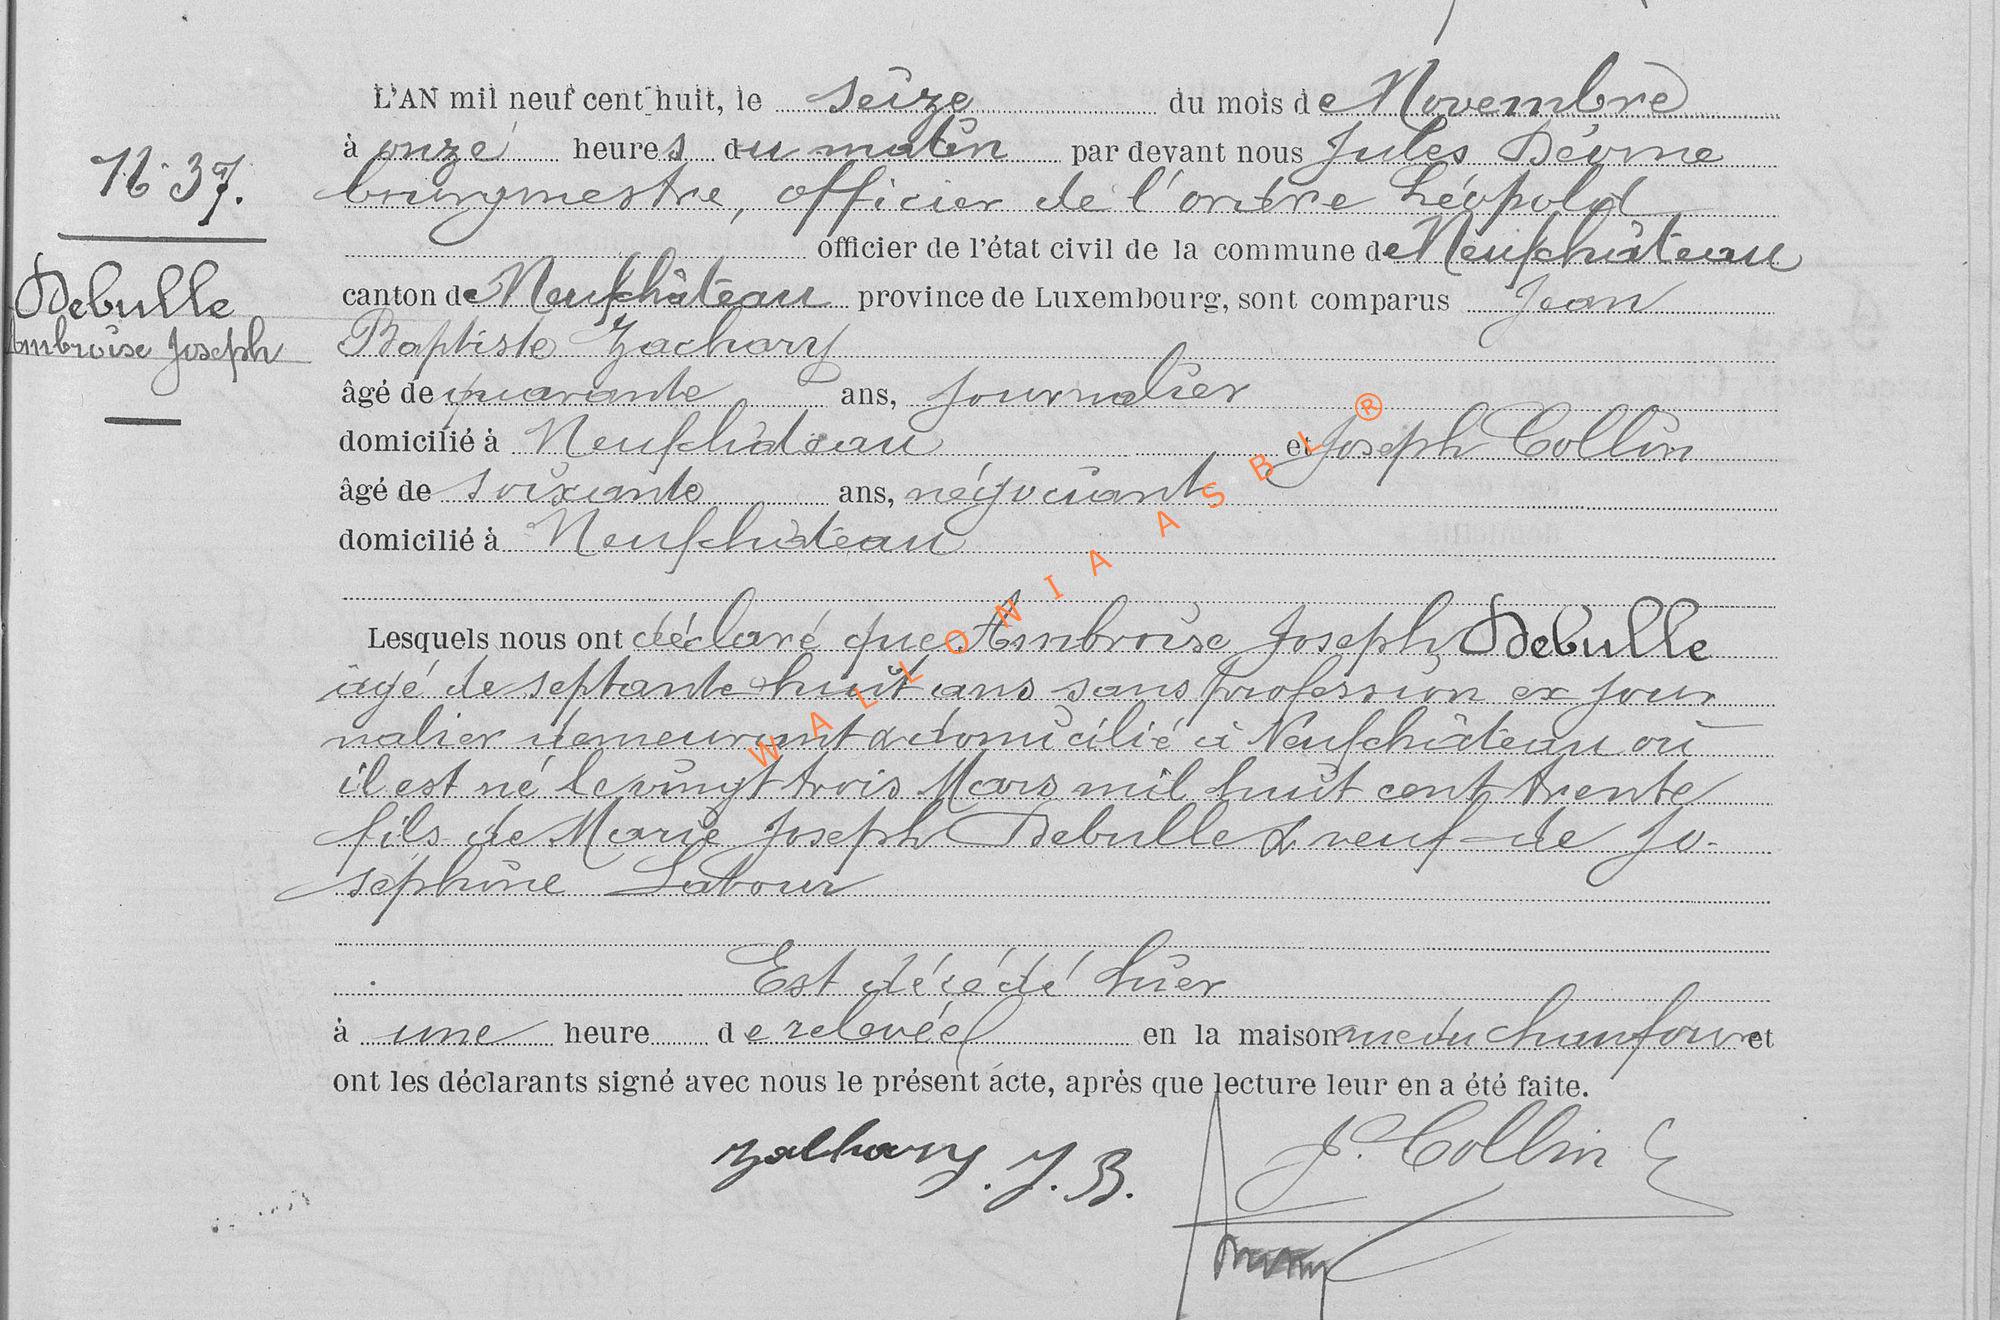 L'AN mil neuf cent huit, le seize du mois de Novembre
à onze heures du matin par devant nous Jules
N° 37.
bourgmestre, officier de l'ordre Léopold
officier de l'état civil de la commune de Neufchâteau
Debulle
canton de Neufchâteau province de Luxembourg, sont comparus Jean
Ambroise Joseph
Baptiste Zachary
âgé de quarante ans, journalier
domicilié à Neufchâteau et Joseph Collin
âgé de soixante ans, négociant
domicilié à Neufchâteau
Lesquels nous ont déclaré que Ambroise Joseph Debulle
âgé de septante huit ans sans profession ex jour
nalier demeurant & domicilié à Neufchâteau où
il est né le vingt trois Mars mil huit cent trente
fils de Marie Joseph Debulle & veuf de Jo-
séphine Latour
Est décédé hier
à une heure de relevée en la maison rue du Chaufour et
ont les déclarants signé avec nous le présent acte, après que lecture leur en a été faite.
Zachary. J. B. J. Collin
WALLONIA ASBL ®